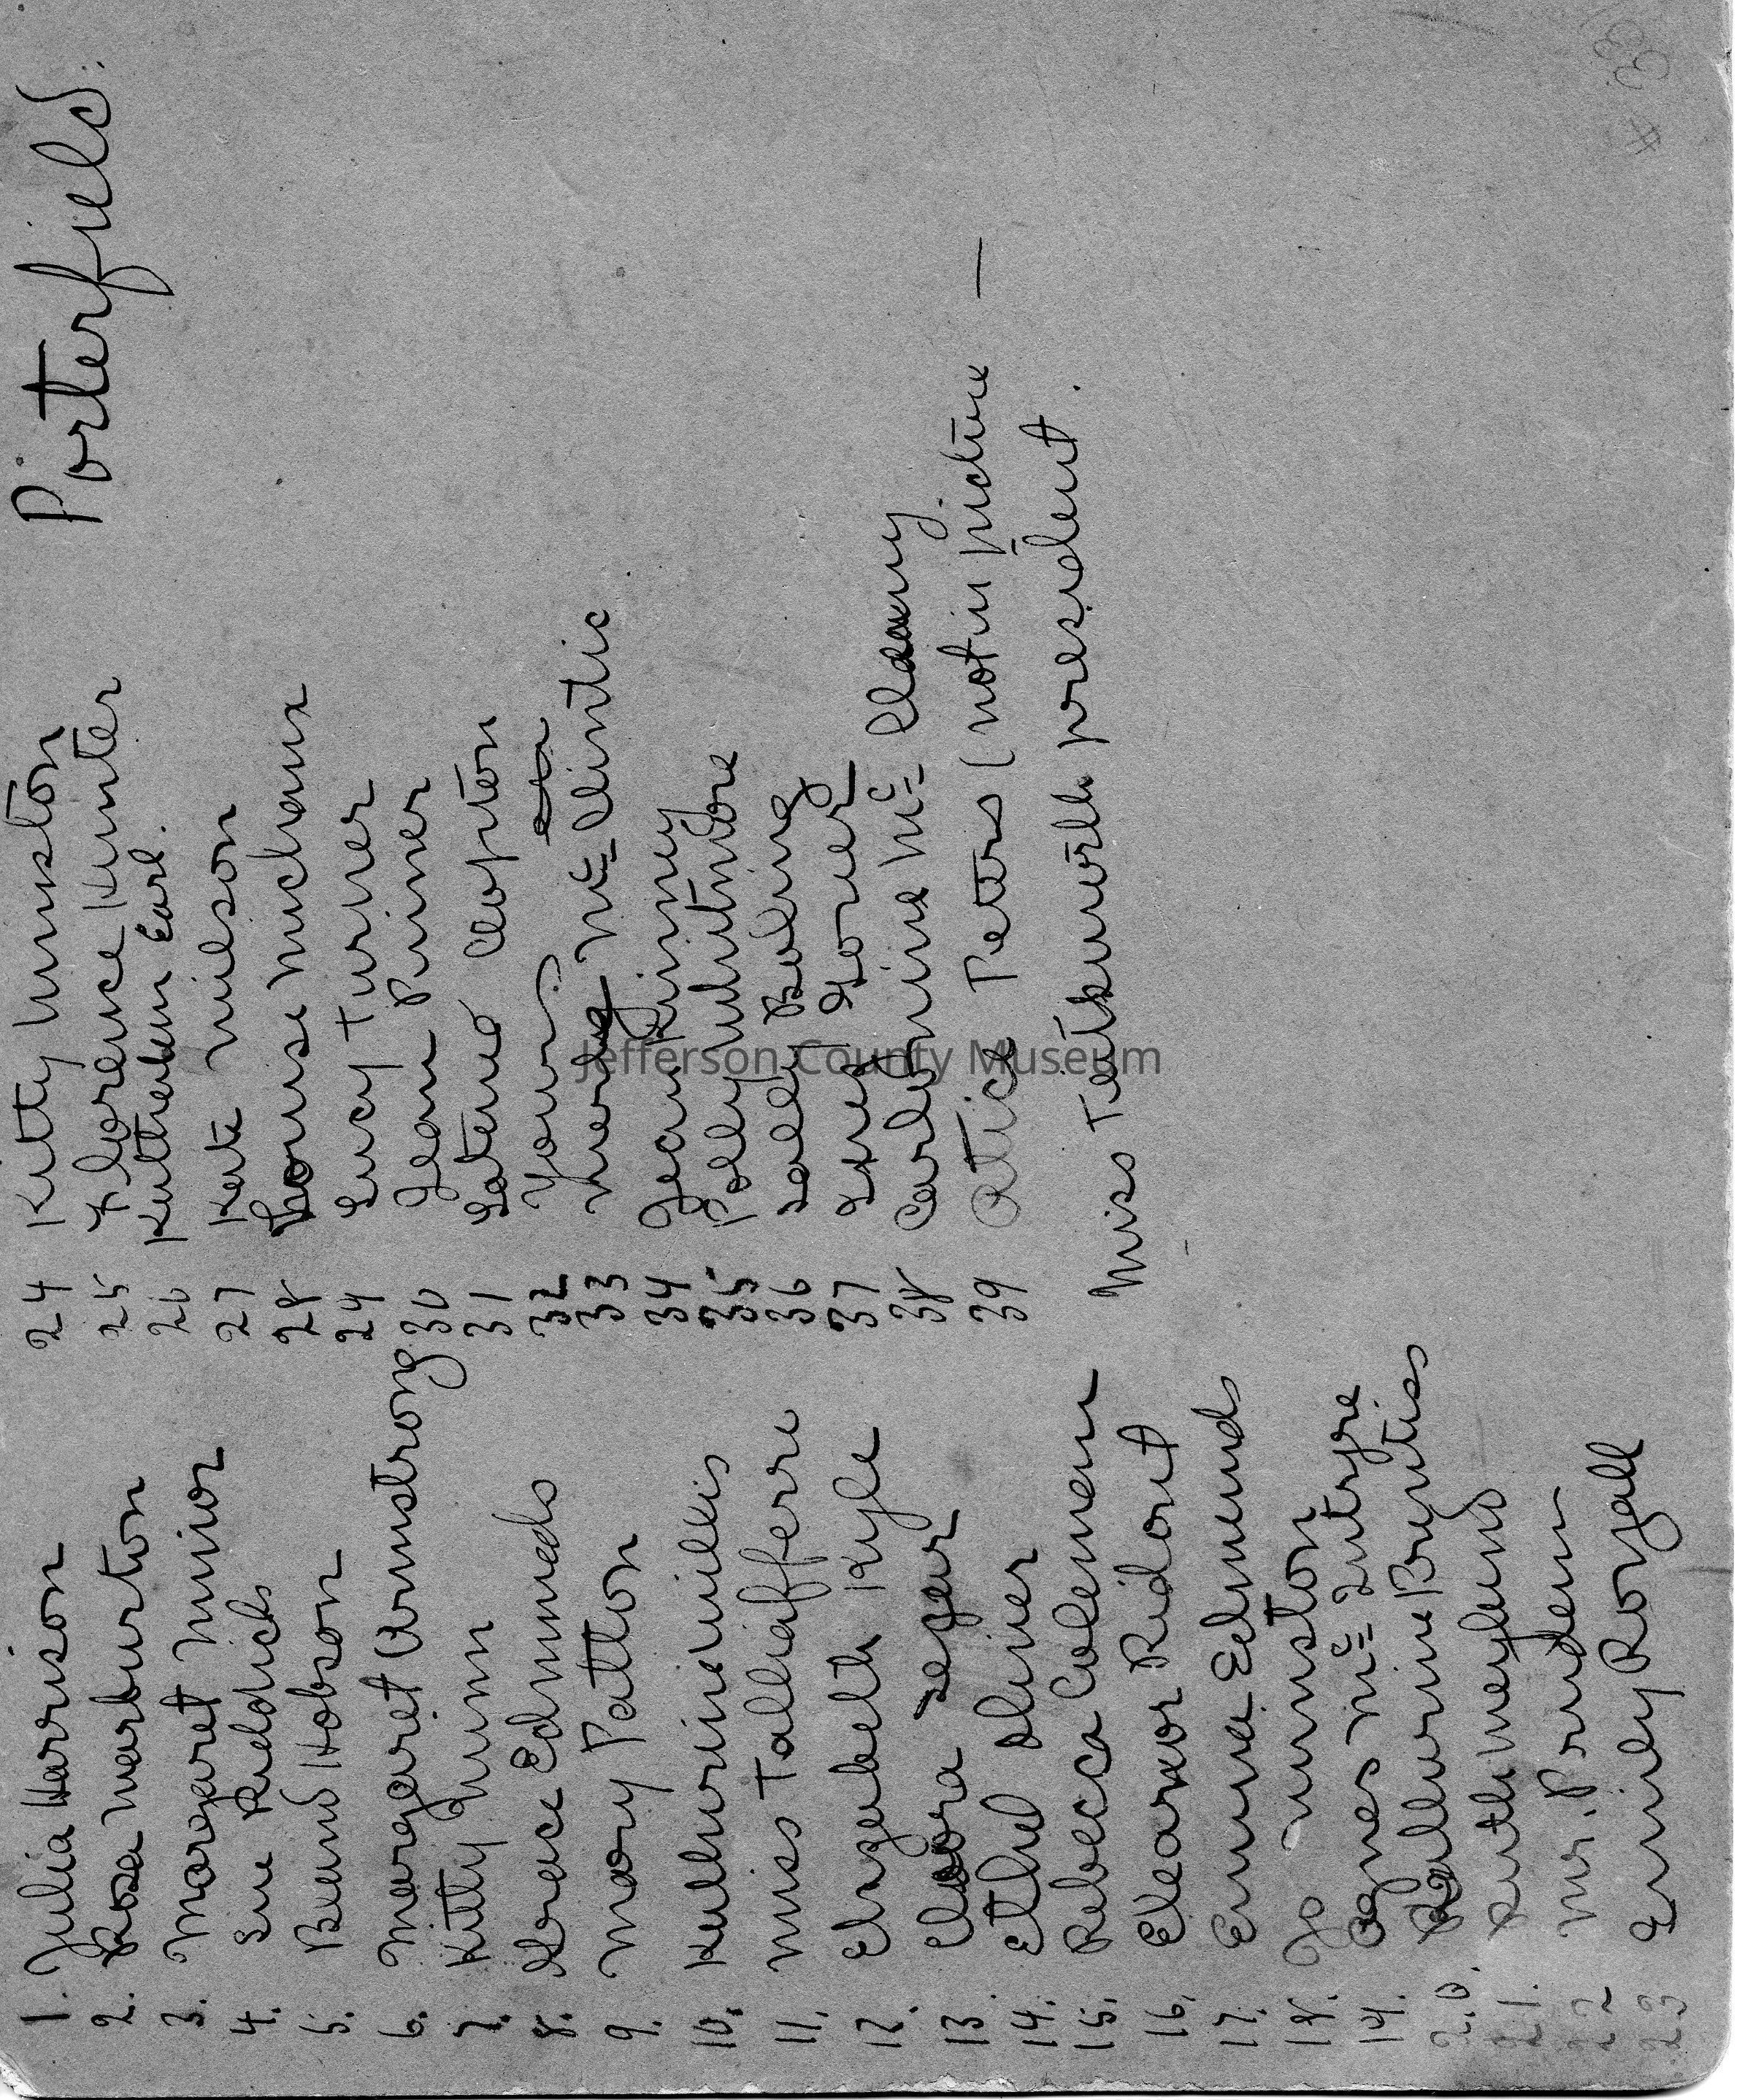 Porterfield.
1. Julia Harrison
2. Rosa Marburton
3. Margaret Minor
4. Sue Reddick
5. Hobson
6. Margaret Armstrong
7. Kitty Nunn
8. Grace Edmunds
9. Mary Patton
10. Katherine Willis
11. Miss Talliafferre
12. Elizabeth Kyle
13 Clara
14. Ethel Oliver
15. Rebecca Coleman
16. Eleanor Ridout
17. Emma Edmunds
18. Jo Winston
19. Agnes McIntyre
20. Katherine Bruntiss
21. Ruth
22 Mr. Pruden
23 Emily Royall
24 Kitty Winston
25 Florence Hunter
26 Kathreen Earl.
27 Kate Wilson
28 Louise Michaux
29 Lucy Turner
30 Jean Piner
31 Clopton
32
33 McClintic
34 Jean Kinny
35 Polly Whitmore
36 Sally Boling
37 Inez Gorier
38 Catherine McClanny
39 Rtice Petters (not in picture —
Miss Tentkuworth president.
# (33)
Jefferson County Museum